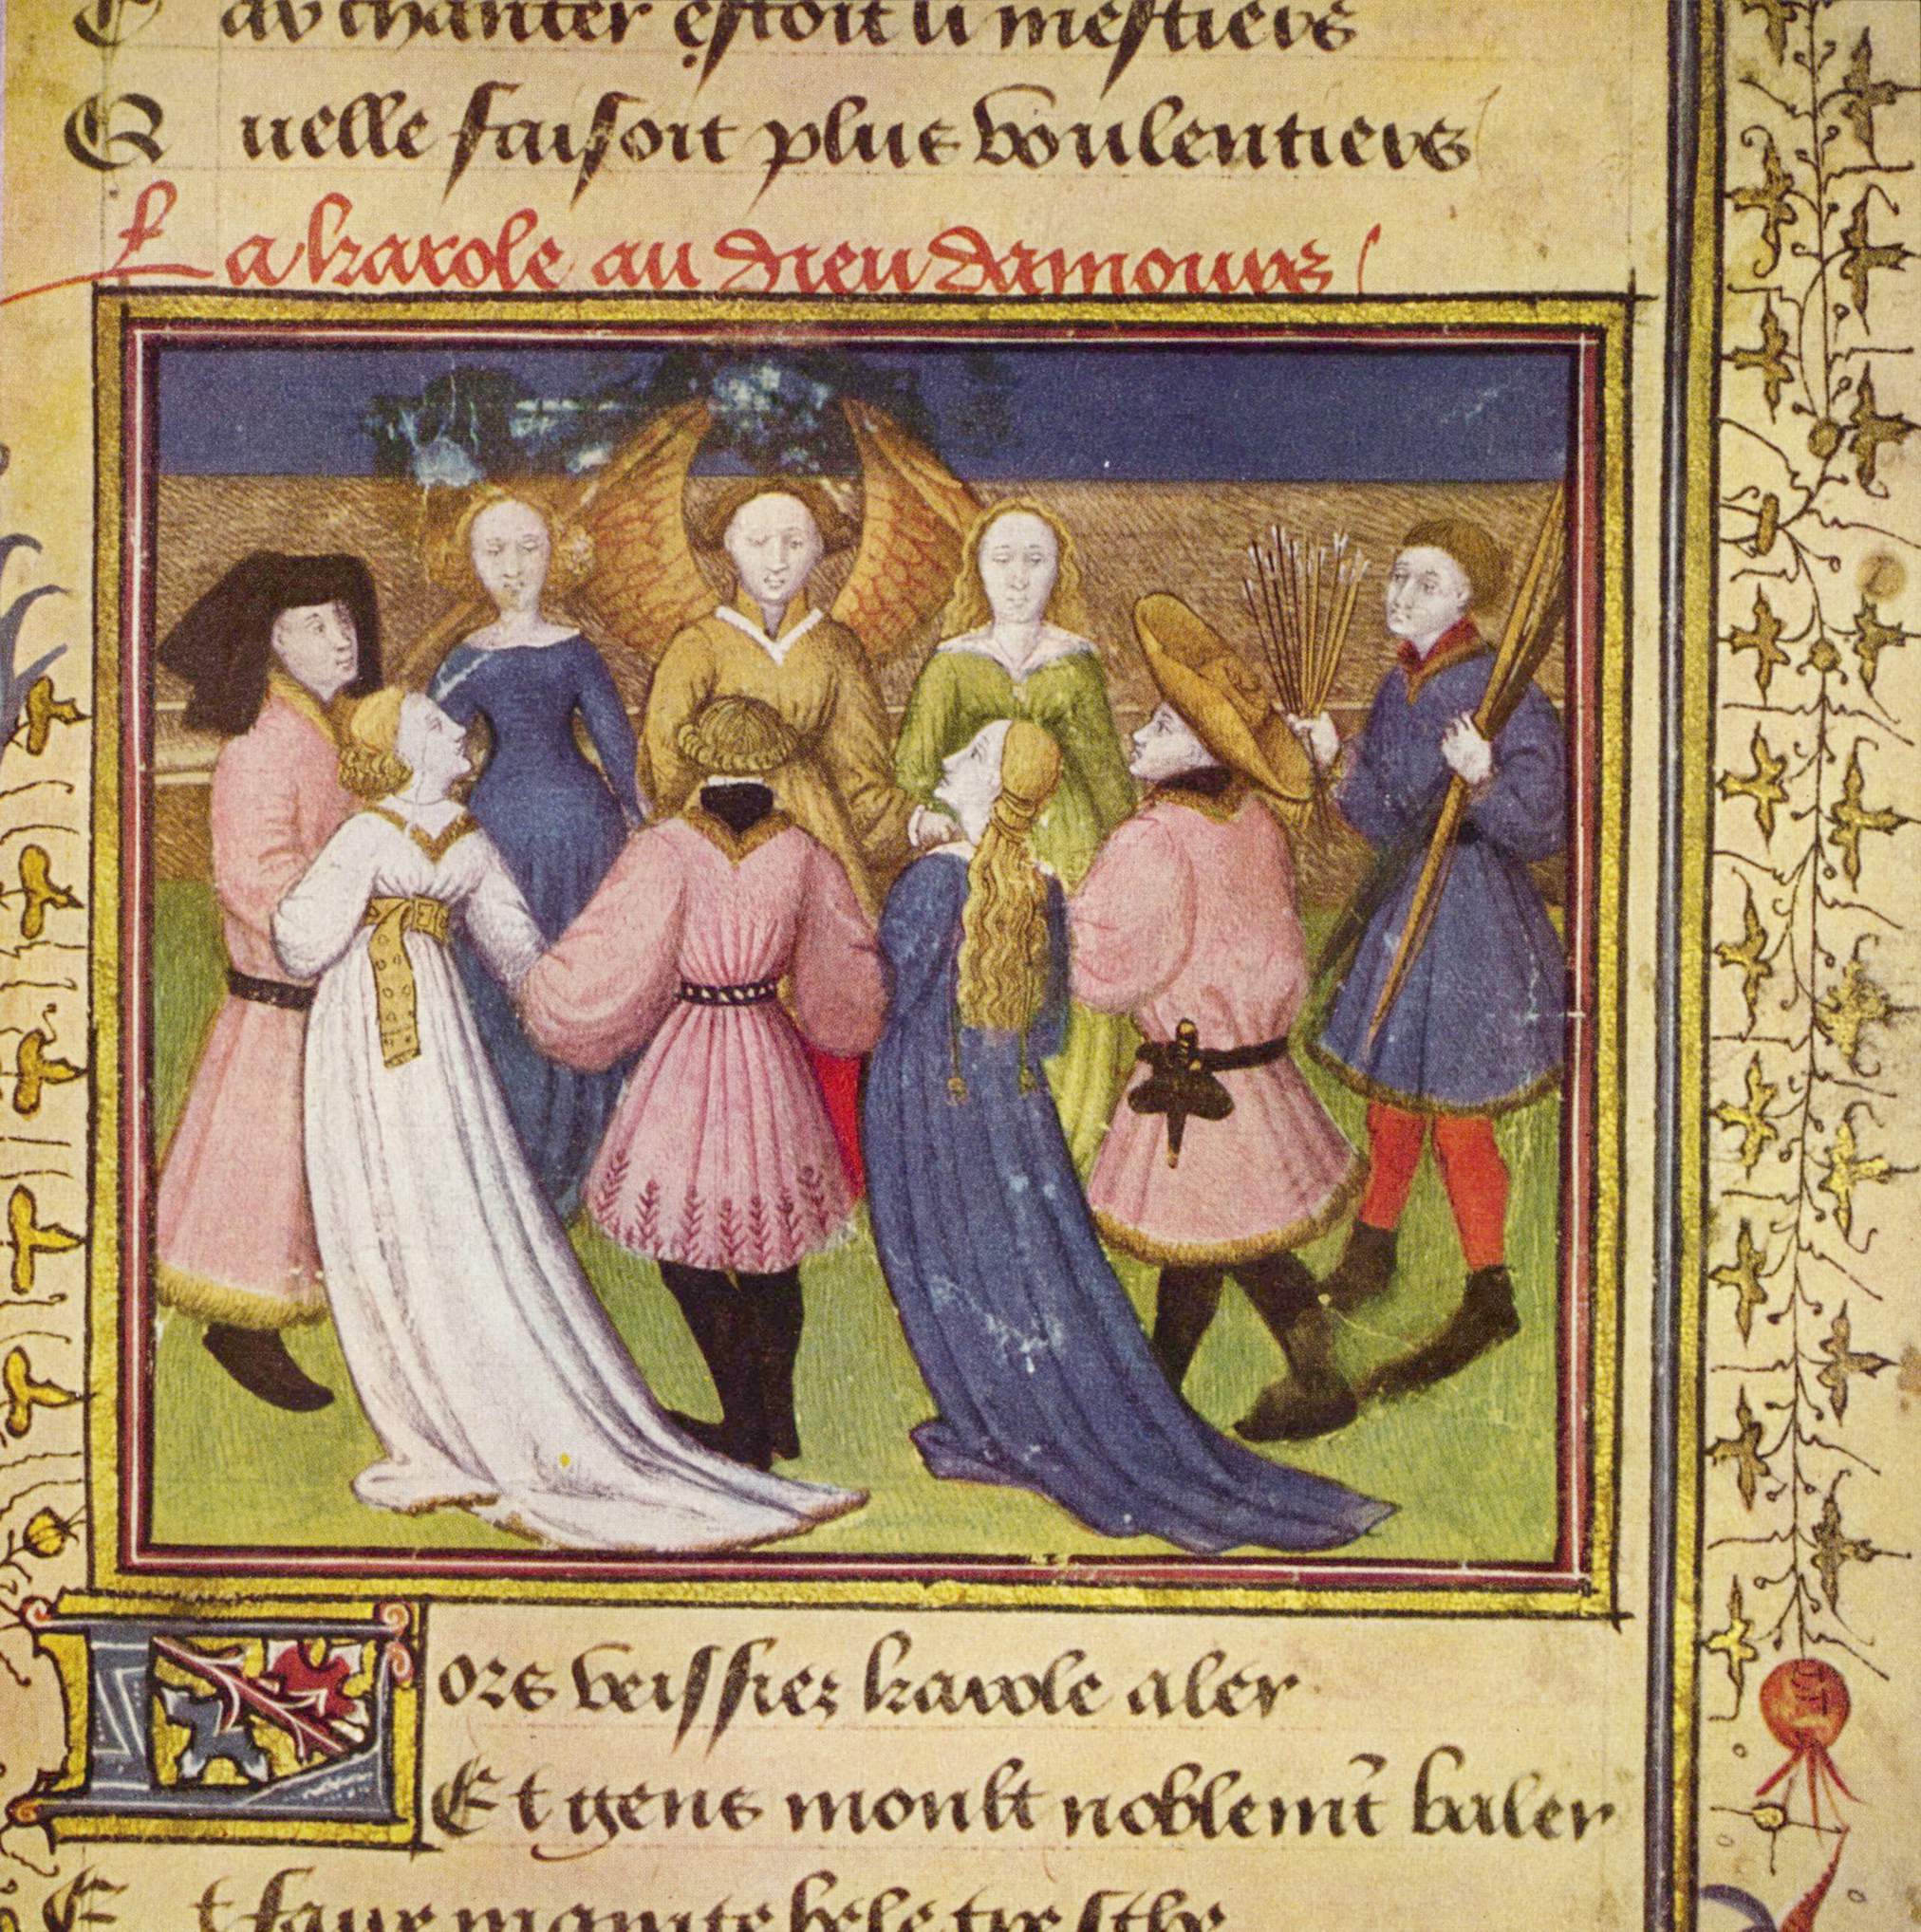 C av chanter estoit li mestiers
Q uelle faisoit plus voulentiers
La karole au dieu damours
Lors veissiez karole aler
Et gens moult noblemt baler
E t faire mainte bele tresche